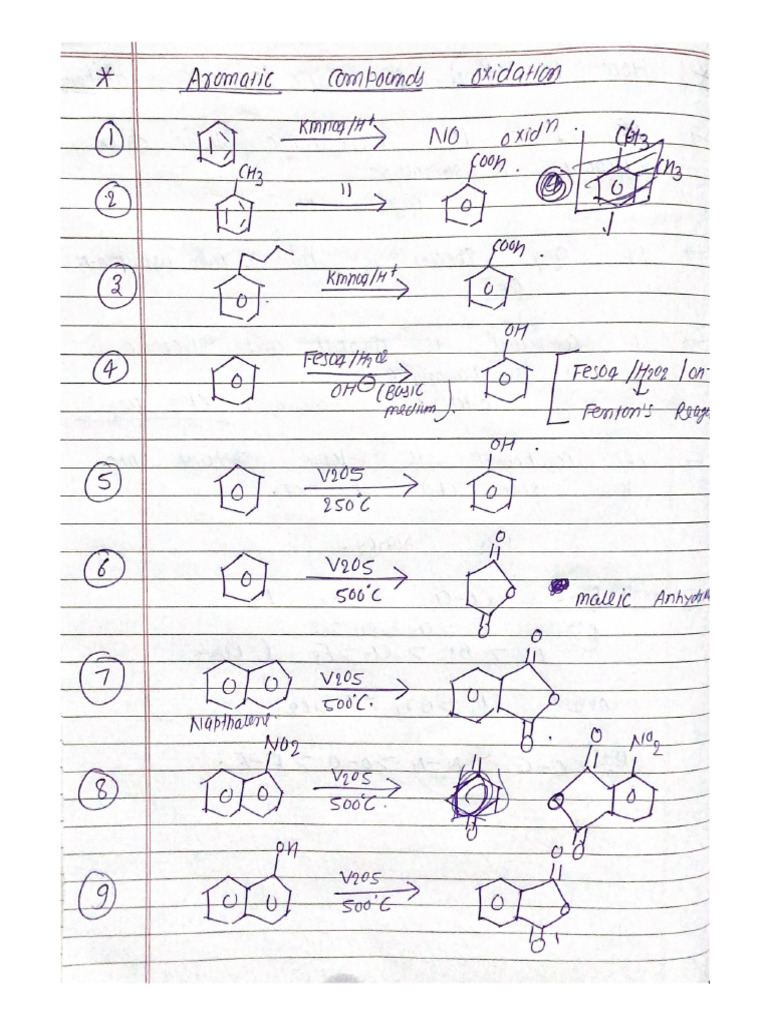 * Aromatic compounds oxidation
① Kmno4/H+ NO oxidn.
CH3 COOH. CH3 CH3
② 11
③ Kmno4/H+ COOH
④ FeSO4/H2O2 OH [FeSO4/H2O2/OH-
OH⊖ (Basic medium). Fenton's Reage
⑤ V2O5 OH.
250°C
⑥ V2O5 O O O
500°C maleic Anhydri
⑦ V2O5 O O O
500°C.
Napthalene.
NO2 O NO2
⑧ V2O5 O
500°C. O
OH O
⑨ V2O5 O
500°C O